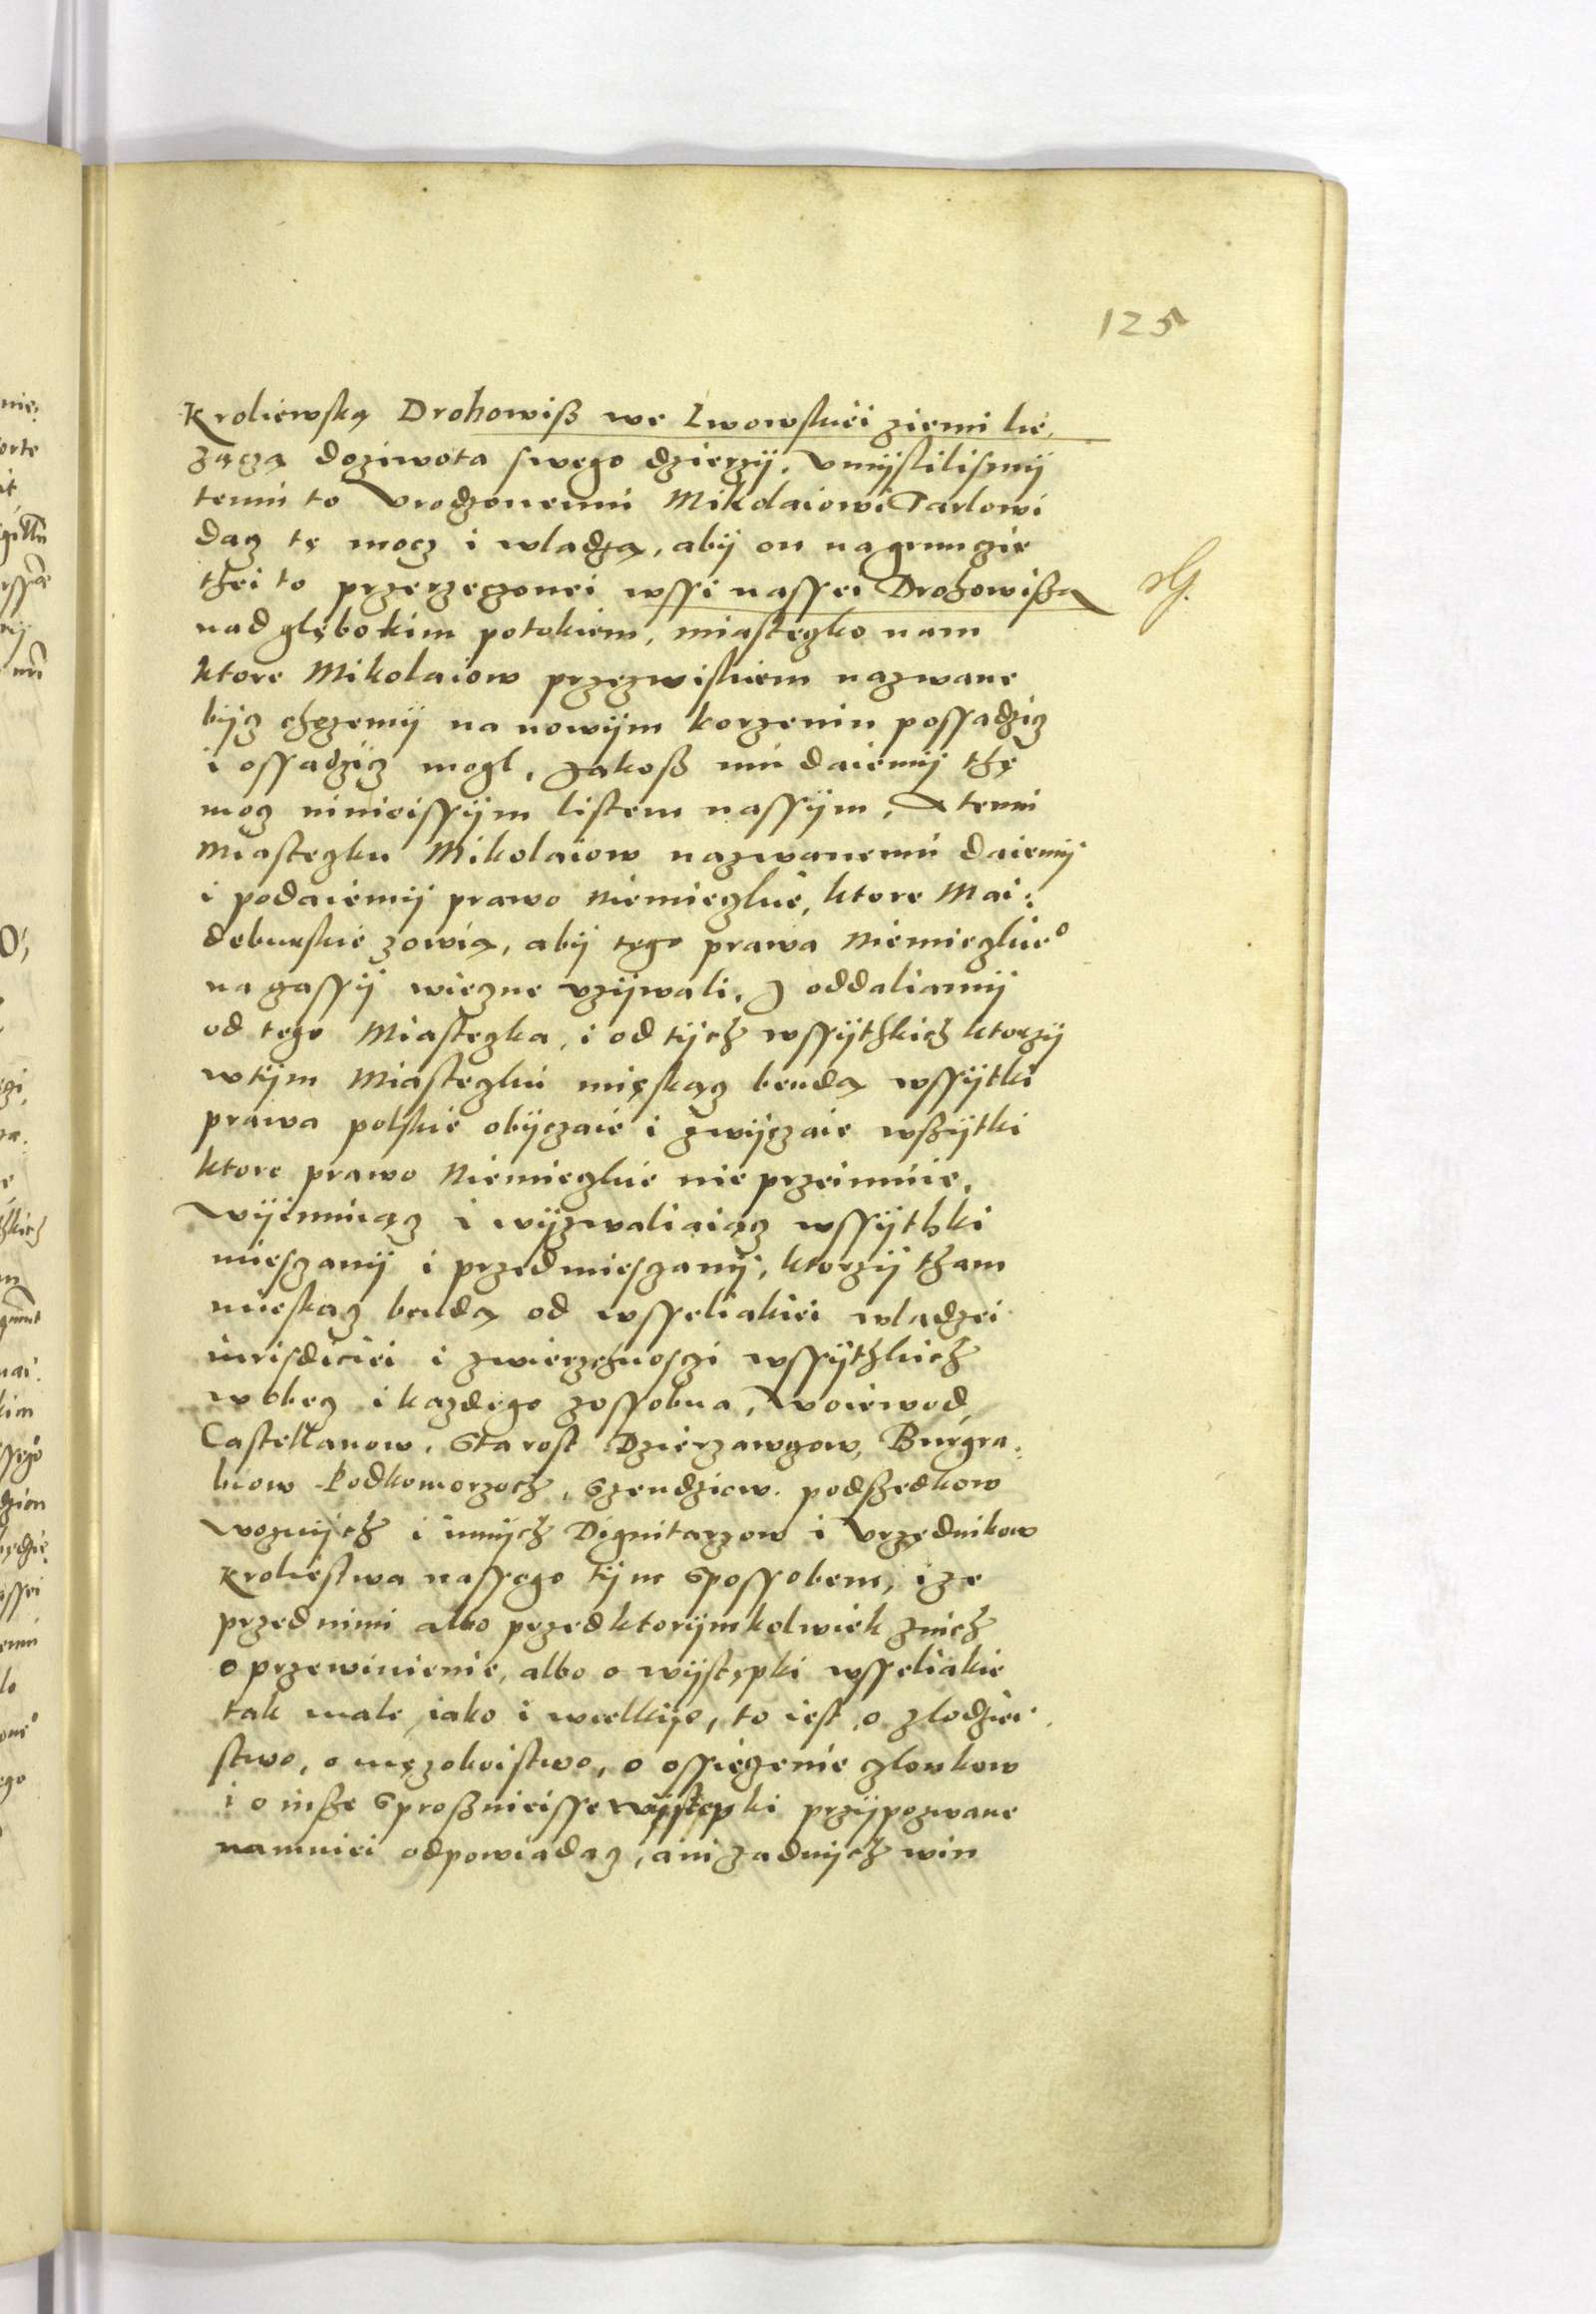 125
Kroliewską Drohowiß we Lwowskiei ziemi lie,
zączą doziwota swego dzierzÿ. Vmÿslilismÿ
temu to Vrodzonemu Mikolaiowi Tarlowi
dacz tę mocz i wladzą, abÿ on nagrunczie
thei to przerzeczonei wssi nassei Drohowißa
nad głębokim potokiem, miasteczko nam
ktore Mikolaiow przezwiskiem nazwane
bÿcz chczemÿ na nowÿm korzeniu possadzicz
i ossadzicz mogl, Jakoß mu daiemÿ thę
mocz ninieissÿm listem nassÿm, A temu
Miasteczku Mikolaiow nazwanemu daiemÿ
i podaiemÿ prawo Niemieczkie, ktore Mai:
deburskie zowią, abÿ tego prawa Niemieczkieo
na czassÿ wieczne vzÿwali, J oddaliamÿ
od tego Miasteczka, i od tÿch wssÿthkich ktorzÿ
wtÿm Miasteczku mięskącz bendą wssÿtki
prawa polskie obÿczaie i zwÿczaie wßÿtki
ktore prawo Niemieczkie nie przeimuie,
Wÿimuiącz i wÿzwaliaiącz wssÿthki
miesczanÿ i przedmiesczanÿ, ktorzÿ tham
mieskacz bendą od wsseliakiei wladzei
iurisdiciei i zwierzchnosczi wssÿthkich
wobecz i kazdego zossobna, Woiewod,
Castellanow, Starost Dzierzawczow, Burgra:
biow Podkomorzoch, Szendziow. podßedkow
Woznÿch i innÿch Dignitarzow i Vrzędnikow
Kroliestwa nassego tÿm Spossobem, ize
przed nimi albo przed ktorÿmkolwiek znich
o przewinienie, albo o wÿstępki wsseliakie
tak male iako i wielkie, to iest, o zlodziei
stwo, o męzoboistwo, o ossieczenie czlonkow
i o inße Sproßnieisse wÿstępki przÿpozwane
namniei odpowiadacz, ani zadnÿch win